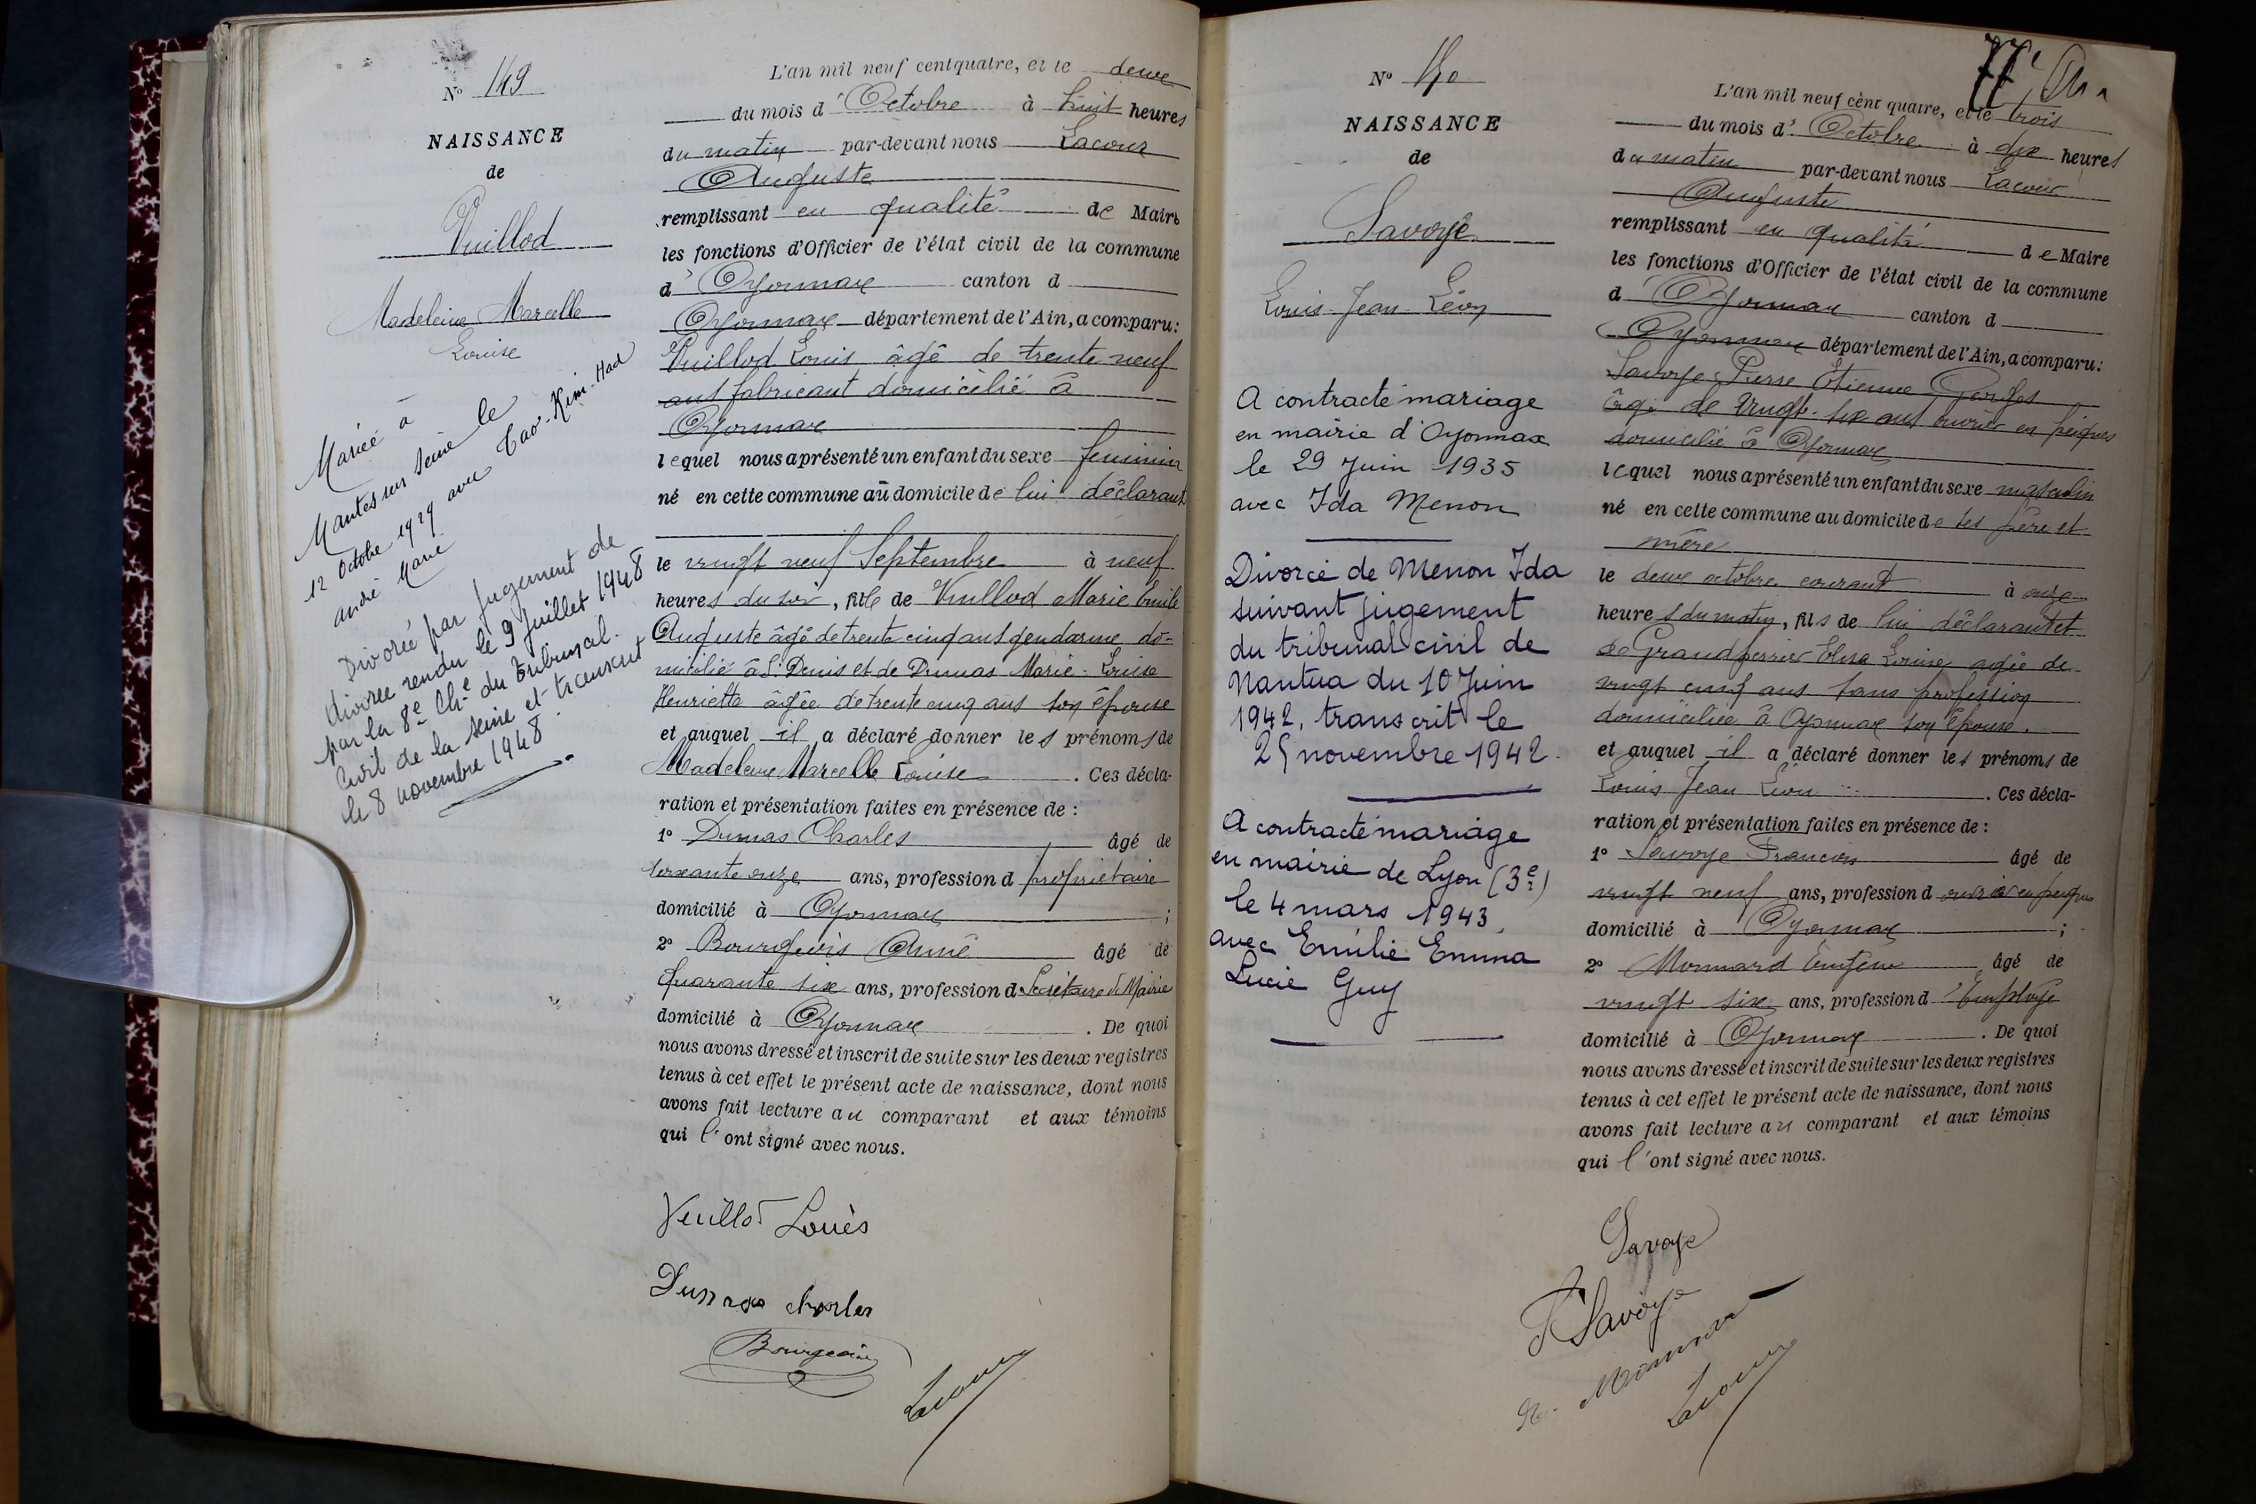 No 149
NAISSANCE
de
Vuillod
Madeleine Marcelle
Louise
Mariée à
Mantes sur Seine le
12 Octobre 1929 avec Cao-Kim-Had
andré Marie
Divorcée par jugement de
divorce rendu le 9 juillet 1948
par la 8e Ch. du tribunal
Civil de la Seine et transcrit
le 8 novembre 1948.
L'an mil neuf cent quatre, et le deux
du mois d'Octobre à huit heures
du matin par-devant nous Lacour
Auguste
remplissant en qualité de Maire
les fonctions d'Officier de l'état civil de la commune
d'Oyonnax canton d
Oyonnax département de l'Ain, a comparu:
Vuillod Louis âgé de trente neuf
ans fabricant domicilié à
Oyonnax
lequel nous a présenté un enfant du sexe feminin
né en cette commune au domicile de lui déclarant
le vingt neuf Septembre à neuf
heures du soir, fille de Vuillod Marie Emile
Auguste âgé de trente cinq ans gendarme do-
micilié à St Denis et de Dumas Marie-Louise
Henriette âgée de trente cinq ans son épouse
et auquel il a déclaré donner les prénoms de
Madeleine Marcelle Louise. Ces décla-
ration et présentation faites en présence de :
1o Dumas Charles âgé de
soixante onze ans, profession d propriétaire
domicilié à Oyonnax ;
2o Bourgeois Aimé âgé de
quarante six ans, profession d Secrétaire de Mairie
domicilié à Oyonnax. De quoi
nous avons dressé et inscrit de suite sur les deux registres
tenus à cet effet le présent acte de naissance, dont nous
avons fait lecture au comparant et aux témoins
qui l'ont signé avec nous.
Vuillod Louis
Dumas charles
Bourgeois
Lacour
No 150
NAISSANCE
de
Savoye
Louis Jean Léon
A contracté mariage
en mairie d'Oyonnax
le 29 Juin 1935
avec Ida Menon
Divorcé de Menon Ida
suivant jugement
du tribunal civil de
Nantua du 10 Juin
1942, transcrit le
25 novembre 1942.
A contracté mariage
en mairie de Lyon (3e)
le 4 mars 1943,
avec Emilie Emma
Lucie Guy
77
L'an mil neuf cent quatre, et le trois
du mois d'Octobre à dix heures
du matin par-devant nous Lacour
Auguste
remplissant en qualité de Maire
les fonctions d'Officier de l'état civil de la commune
d'Oyonnax canton d
Oyonnax département de l'Ain, a comparu:
Savoye Pierre Etienne Georges
âgé de vingt-six ans ouvrier en peignes
domicilié à Oyonnax
lequel nous a présenté un enfant du sexe masculin
né en cette commune au domicile de ses père et
mère
le deux octobre courant à onze
heures du matin, fils de lui déclarant et
de Grandperrier Elisa Louise agée de
vingt cinq ans sans profession
domiciliée à Oyonnax son épouse.
et auquel il a déclaré donner les prénoms de
Louis Jean Léon. Ces décla-
ration et présentation faites en présence de :
1o Savoye Francois âgé de
vingt neuf ans, profession d ouvrier en peignes
domicilié à Oyonnax ;
2o Monnard Eugène âgé de
vingt six ans, profession d'Employé
domicilié à Oyonnax. De quoi
nous avons dressé et inscrit de suite sur les deux registres
tenus à cet effet le présent acte de naissance, dont nous
avons fait lecture au comparant et aux témoins
qui l'ont signé avec nous.
Savoye
F Savoye
Monnard
Lacour